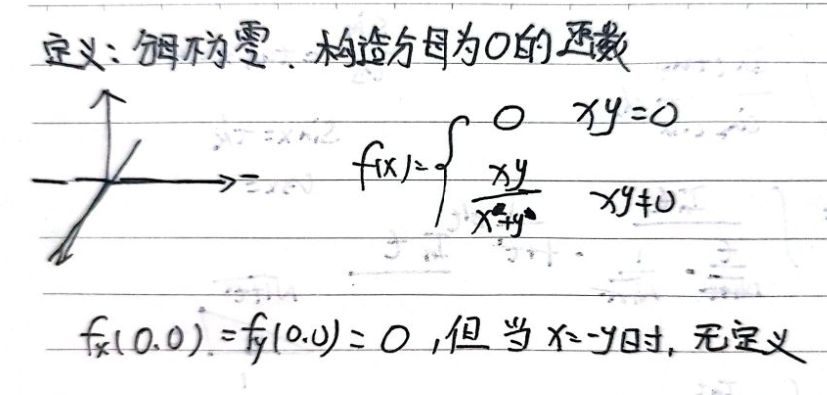 定义:分母不为零、构造分母为0的函数
f(x)={ 0 xy=0
xy/(x+y) xy≠0
fx(0.0).=fy(0.0)=0,但当x=-y时,无定义